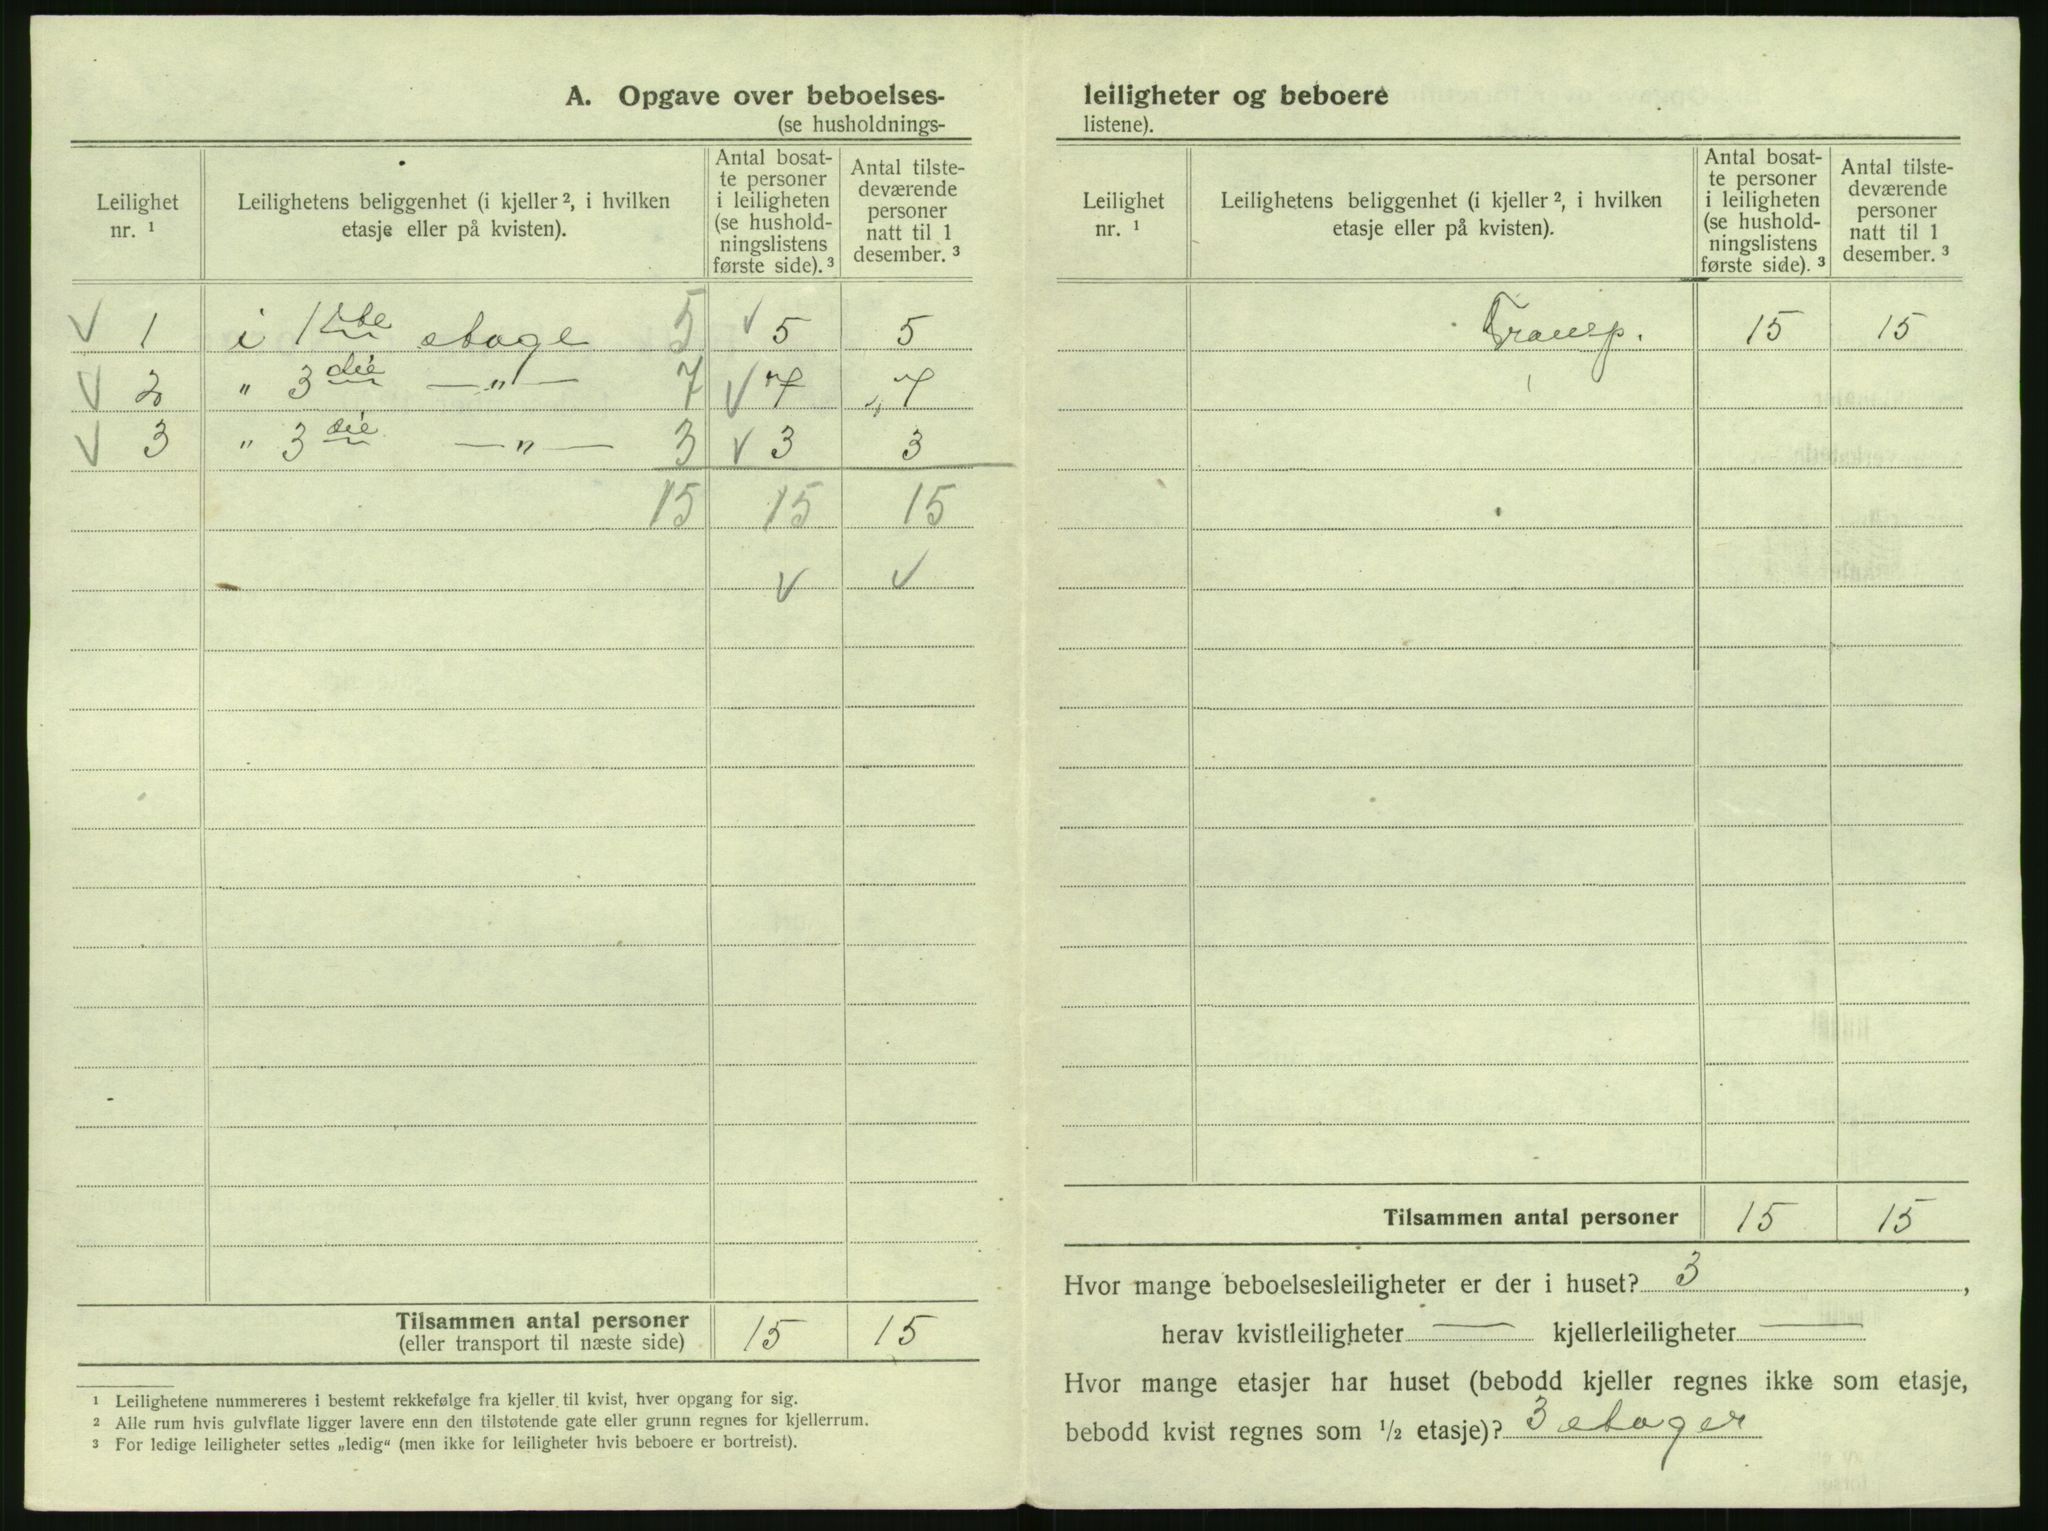 A. Opgave over beboelses-
(se husholdnings-
Leilighet nr. ¹
Leilighetens beliggenhet (i kjeller ², i hvilken etasje eller på kvisten).
Antal bosatte personer i leiligheten (se husholdningslistens første side). ³
Antal tilstedeværende personer natt til 1 desember. ³
√ 1 i 1ste etage 5 √ 5 5
√ 2 " 3die — " — 7 √ 7 7
√ 3 " 3die — " — 3 √ 3 3
15 15 15
√ √
Tilsammen antal personer 15 15
(eller transport til næste side)
¹ Leilighetene nummereres i bestemt rekkefølge fra kjeller til kvist, hver opgang for sig.
² Alle rum hvis gulvflate ligger lavere enn den tilstøtende gate eller grunn regnes for kjellerrum.
³ For ledige leiligheter settes „ledig“ (men ikke for leiligheter hvis beboere er bortreist).
leiligheter og beboere
listene).
Leilighet nr. ¹
Leilighetens beliggenhet (i kjeller ², i hvilken etasje eller på kvisten).
Antal bosatte personer i leiligheten (se husholdningslistens første side). ³
Antal tilstedeværende personer natt til 1 desember. ³
Transp. 15 15
Tilsammen antal personer 15 15
Hvor mange beboelsesleiligheter er der i huset? 3,
herav kvistleiligheter — kjellerleiligheter —
Hvor mange etasjer har huset (bebodd kjeller regnes ikke som etasje,
bebodd kvist regnes som ½ etasje)? 3 etager